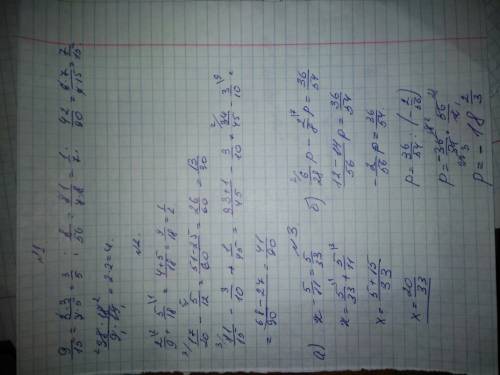 №1
9/15 = 3·3/3·5 = 3/5 ; 1/50 = 21/48 = 1/2. 42/90 = 6·7/6·15 = 7/15
= 2·2 = 4.
№2.
2/9 + 5/18 = 4+5/18 = 9/18 = 1/2
17/20 - 5/12 = 51-25/60 = 26/60 = 13/30
11/15 - 3/10 + 1/45 = 33+1/45 - 3/10 = 34/45 - 3/10 =
= 68-27/90 = 41/90
№3
а) x - 5/11 = 5/33
x = 5/33 + 5/11
x = 5+15/33
x = 20/33
б) 6/28 p - 2/8 p = 36/54
12-14/56 p = 36/54
- 2/56 p = 36/54
p = 36/54 : (- 2/56)
p = -18 2/3